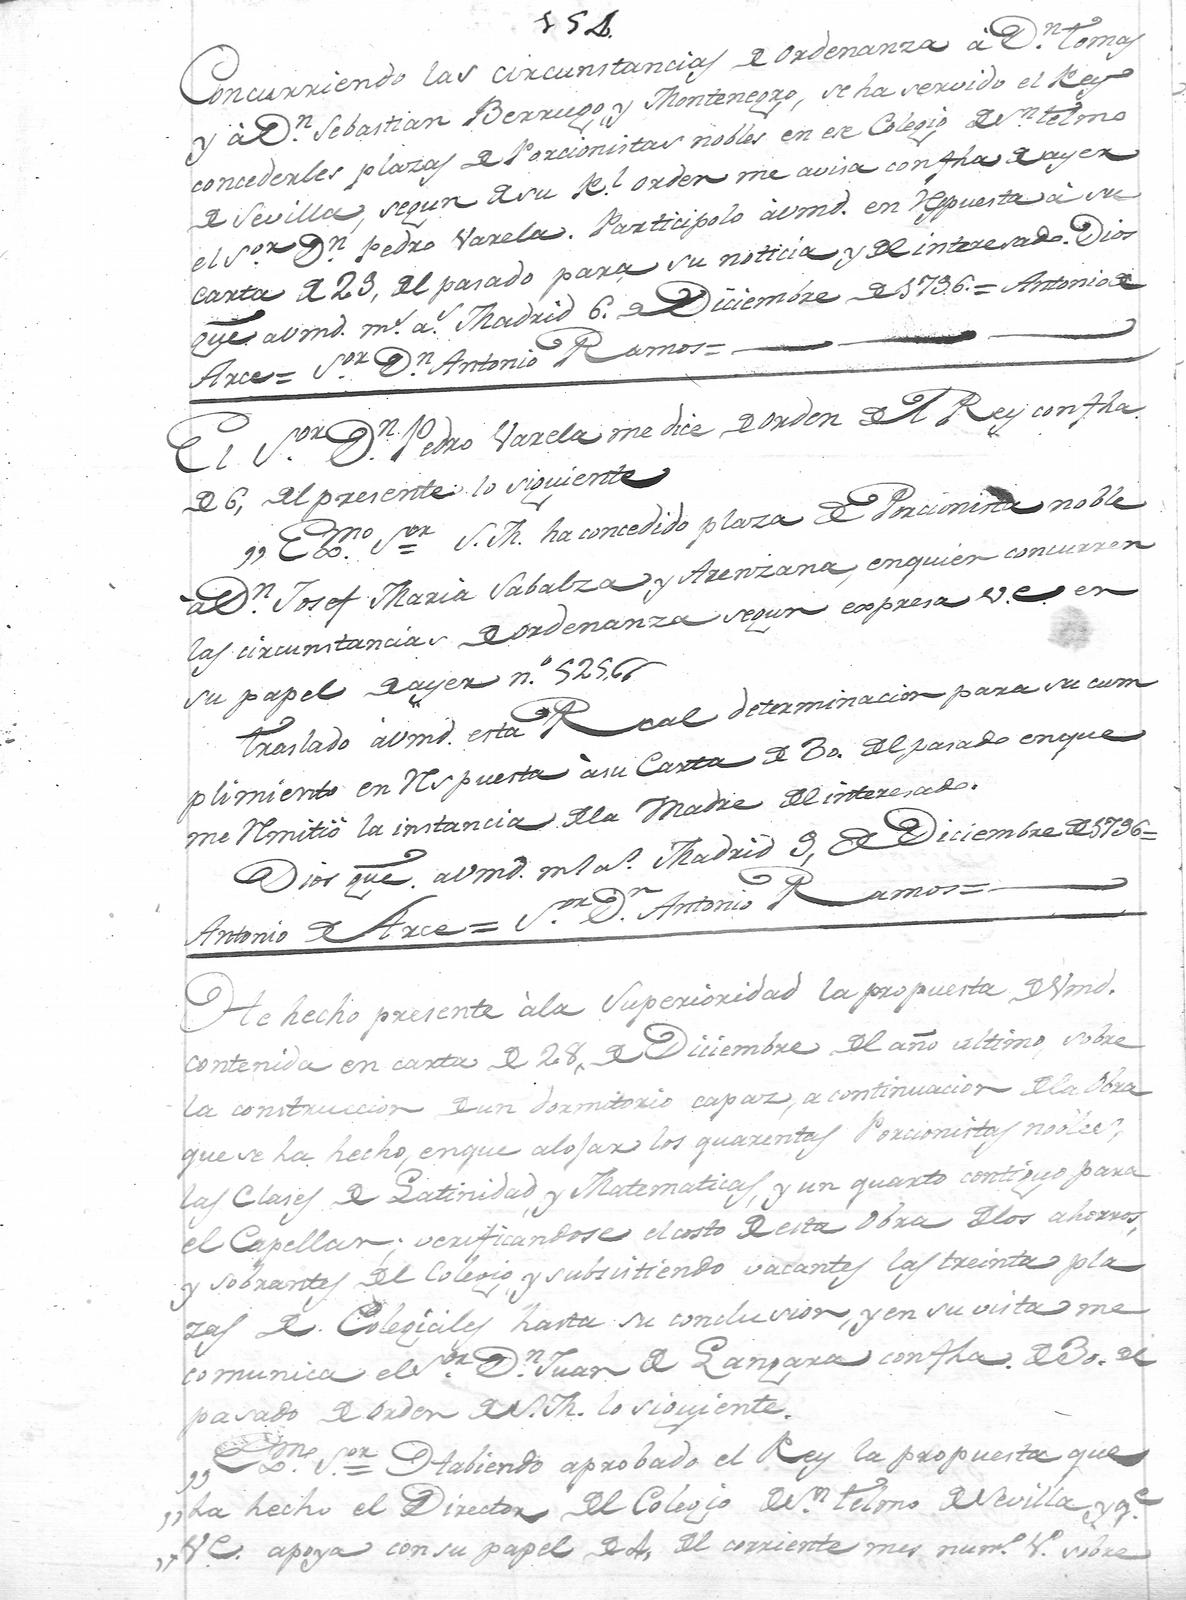 154.
Concurriendo las circunstancias de ordenanza à Dn. tomas
y à Dn. Sebastian Berrugo, y Montenegro, se ha servido el Rey
concederles plazas de Porcionistas nobles en ese Colegio de Sn. telmo
de Sevilla, segun de su Rl. orden me avisa con fha de ayer
el Sor. Dn. Pedro Varela. Participolo à Vmd. en Respuesta à su
carta de 23, del pasado para su noticia y del interesado. Dios
gue. a Vmd. ms. as. Madrid 6. de Diciembre de 1796.= Antonio de
Arce= Sor. Dn. Antonio Ramos=
El Sor. Dn. Pedro Varela me dice de orden del Rey con fha.
de 6, del presente lo siguiente
„ Exmo. Sor= S.M. ha concedido plaza de Porcionista noble
à Dn. Josef Maria Sabalza y Arenzana, en quien concurren
las circunstancias de ordenanza segun expresa V.e. en
su papel de ayer n.º 5256„
traslado à Vmd. esta Real determinacion para su cum
plimiento en Respuesta à su Carta de 30. del pasado en que
me Rmitiò la instancia de la Madre del interesado.
Dios gue. a Vmd. ms as. Madrid 9, de Diciembre de 1796=
Antonio de Arce= Sor. Dn. Antonio Ramos=
He hecho presente à la Superioridad la propuesta de Vmd.
contenida en carta de 28, de Diciembre del año ultimo, sobre
la construccion de un dormitorio capaz, a continuacion de la Obra
que se ha hecho, en que alojar los quarentas Porcionistas nobles,
las Clases de Latinidad, y Matematicas, y un quarto contiguo para
el Capellan; verificandose el costo de esta Obra de los ahorros,
y sobrantes del Colegio, y subsistiendo vacantes las treinta pla
zas de Colegiales hasta su conclusion, y en su vista me
comunica el Sor. Dn. Juan de Langara con fha. de 30. del
pasado de orden de S.M. lo siguiente.
„ Exmo. Sor= Habiendo aprobado el Rey la propuesta que
„ ha hecho el Director del Colegio de Sn. telmo de Sevilla, y qe.
„ V.e. apoya con su papel de 4, del corriente mes num. V. sobre